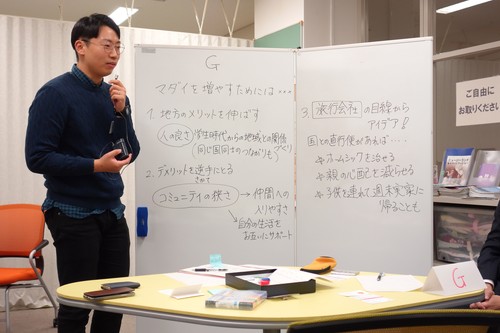 G
マダイを増やすためには…
1. 地方のメリットを伸ばす
人の良さ 学生時代からの地域との関係づくり
(同じ国同士のつながりも)
2. デメリットを逆手にとる
さかて
コミュニティの狭さ → 仲間への入りやすさ
→ 自分の生活をお互いにサポート
3. 旅行会社 の目線からアイデア!
国との直行便があれば…
ホームシックを治せる
親の心配を減らせる
子供を連れて週末実家に帰ることも
ご自由に
お取りください
G